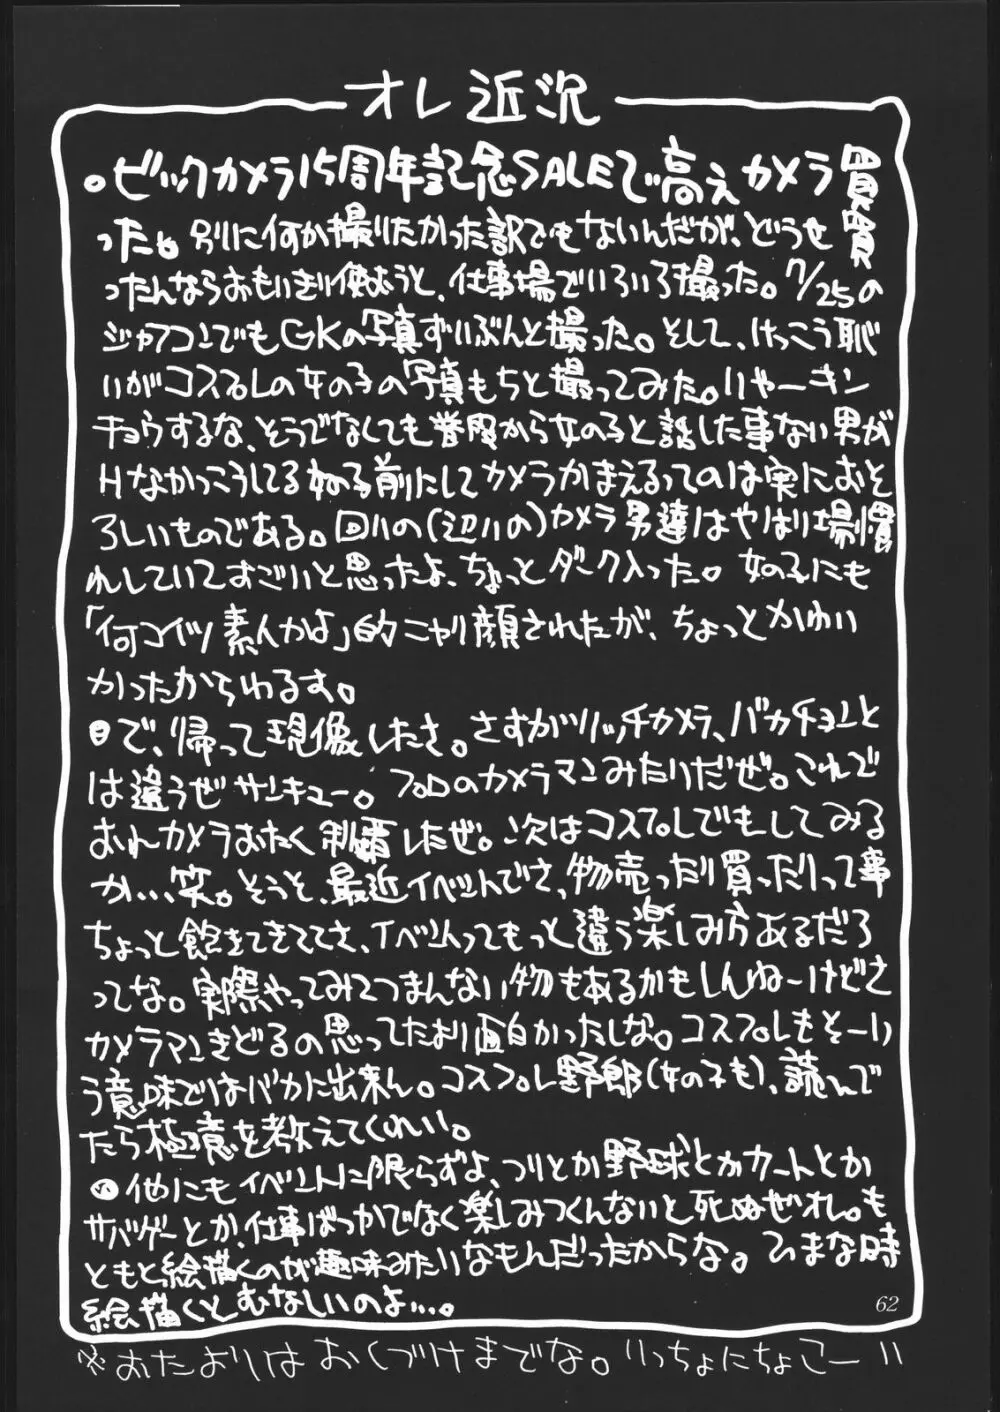 オレ近況
。ビックカメラ15周年記念SALEで高えカメラ買
った。別に何か撮りたかった訳でもないんだが、どうせ買
ったんならおもいきり使おうと、仕事場でいろいろ撮った。7/25の
ジャフコンでもGKの写真ずいぶんと撮った。そして、けっこう恥
いがコスプレの女の子の写真もちと撮ってみた。いやーキン
チョウするな、そうでなくても普段から女の子と話した事ない男が
Hなかっこうしてるねる前にしてカメラかまえるってのは実におそ
ろしいものである。回りの(辺りの)カメラ男達はやはり場慣
れしていてすごいと思ったよ、ちょっとダーク入った。女の子にも
「何コイツ素人かよ」的ニヤリ顔されたが、ちょっとかゆい
かったからわるす。
で、帰って現像したさ。さすがリッチカメラ、バカチョンと
は違うぜサンキュー。プロのカメラマンみたいだぜ。これで
おれカメラおたく制覇したぜ。次はコスプレでもしてみる
か…笑。そうと、最近イベントでさ、物売ったり買ったりって事
ちょっと飽きてきててさ、イベントってもっと違う楽しみ方あるだろ
ってな。実際やってみてつまんない物もあるかもしんねーけどさ
カメラマンきどるの思ってたより面白かったしな。コスプレもそーい
う意味ではバカに出来ん。コスプレ野郎(女の子も)、読んで
たら極意を教えてくれい。
他にもイベントに限らずよ、つりとか野球とかカートとか
サバゲーとか、仕事ばっかでなく楽しみつくんないと死ぬぜオレ。も
ともと絵描くのが趣味みたいなもんだったからな。ひまな時
絵描くとむなしいのよ…。
62
※おたよりはおくづけまでな。いっちょにちょこーい